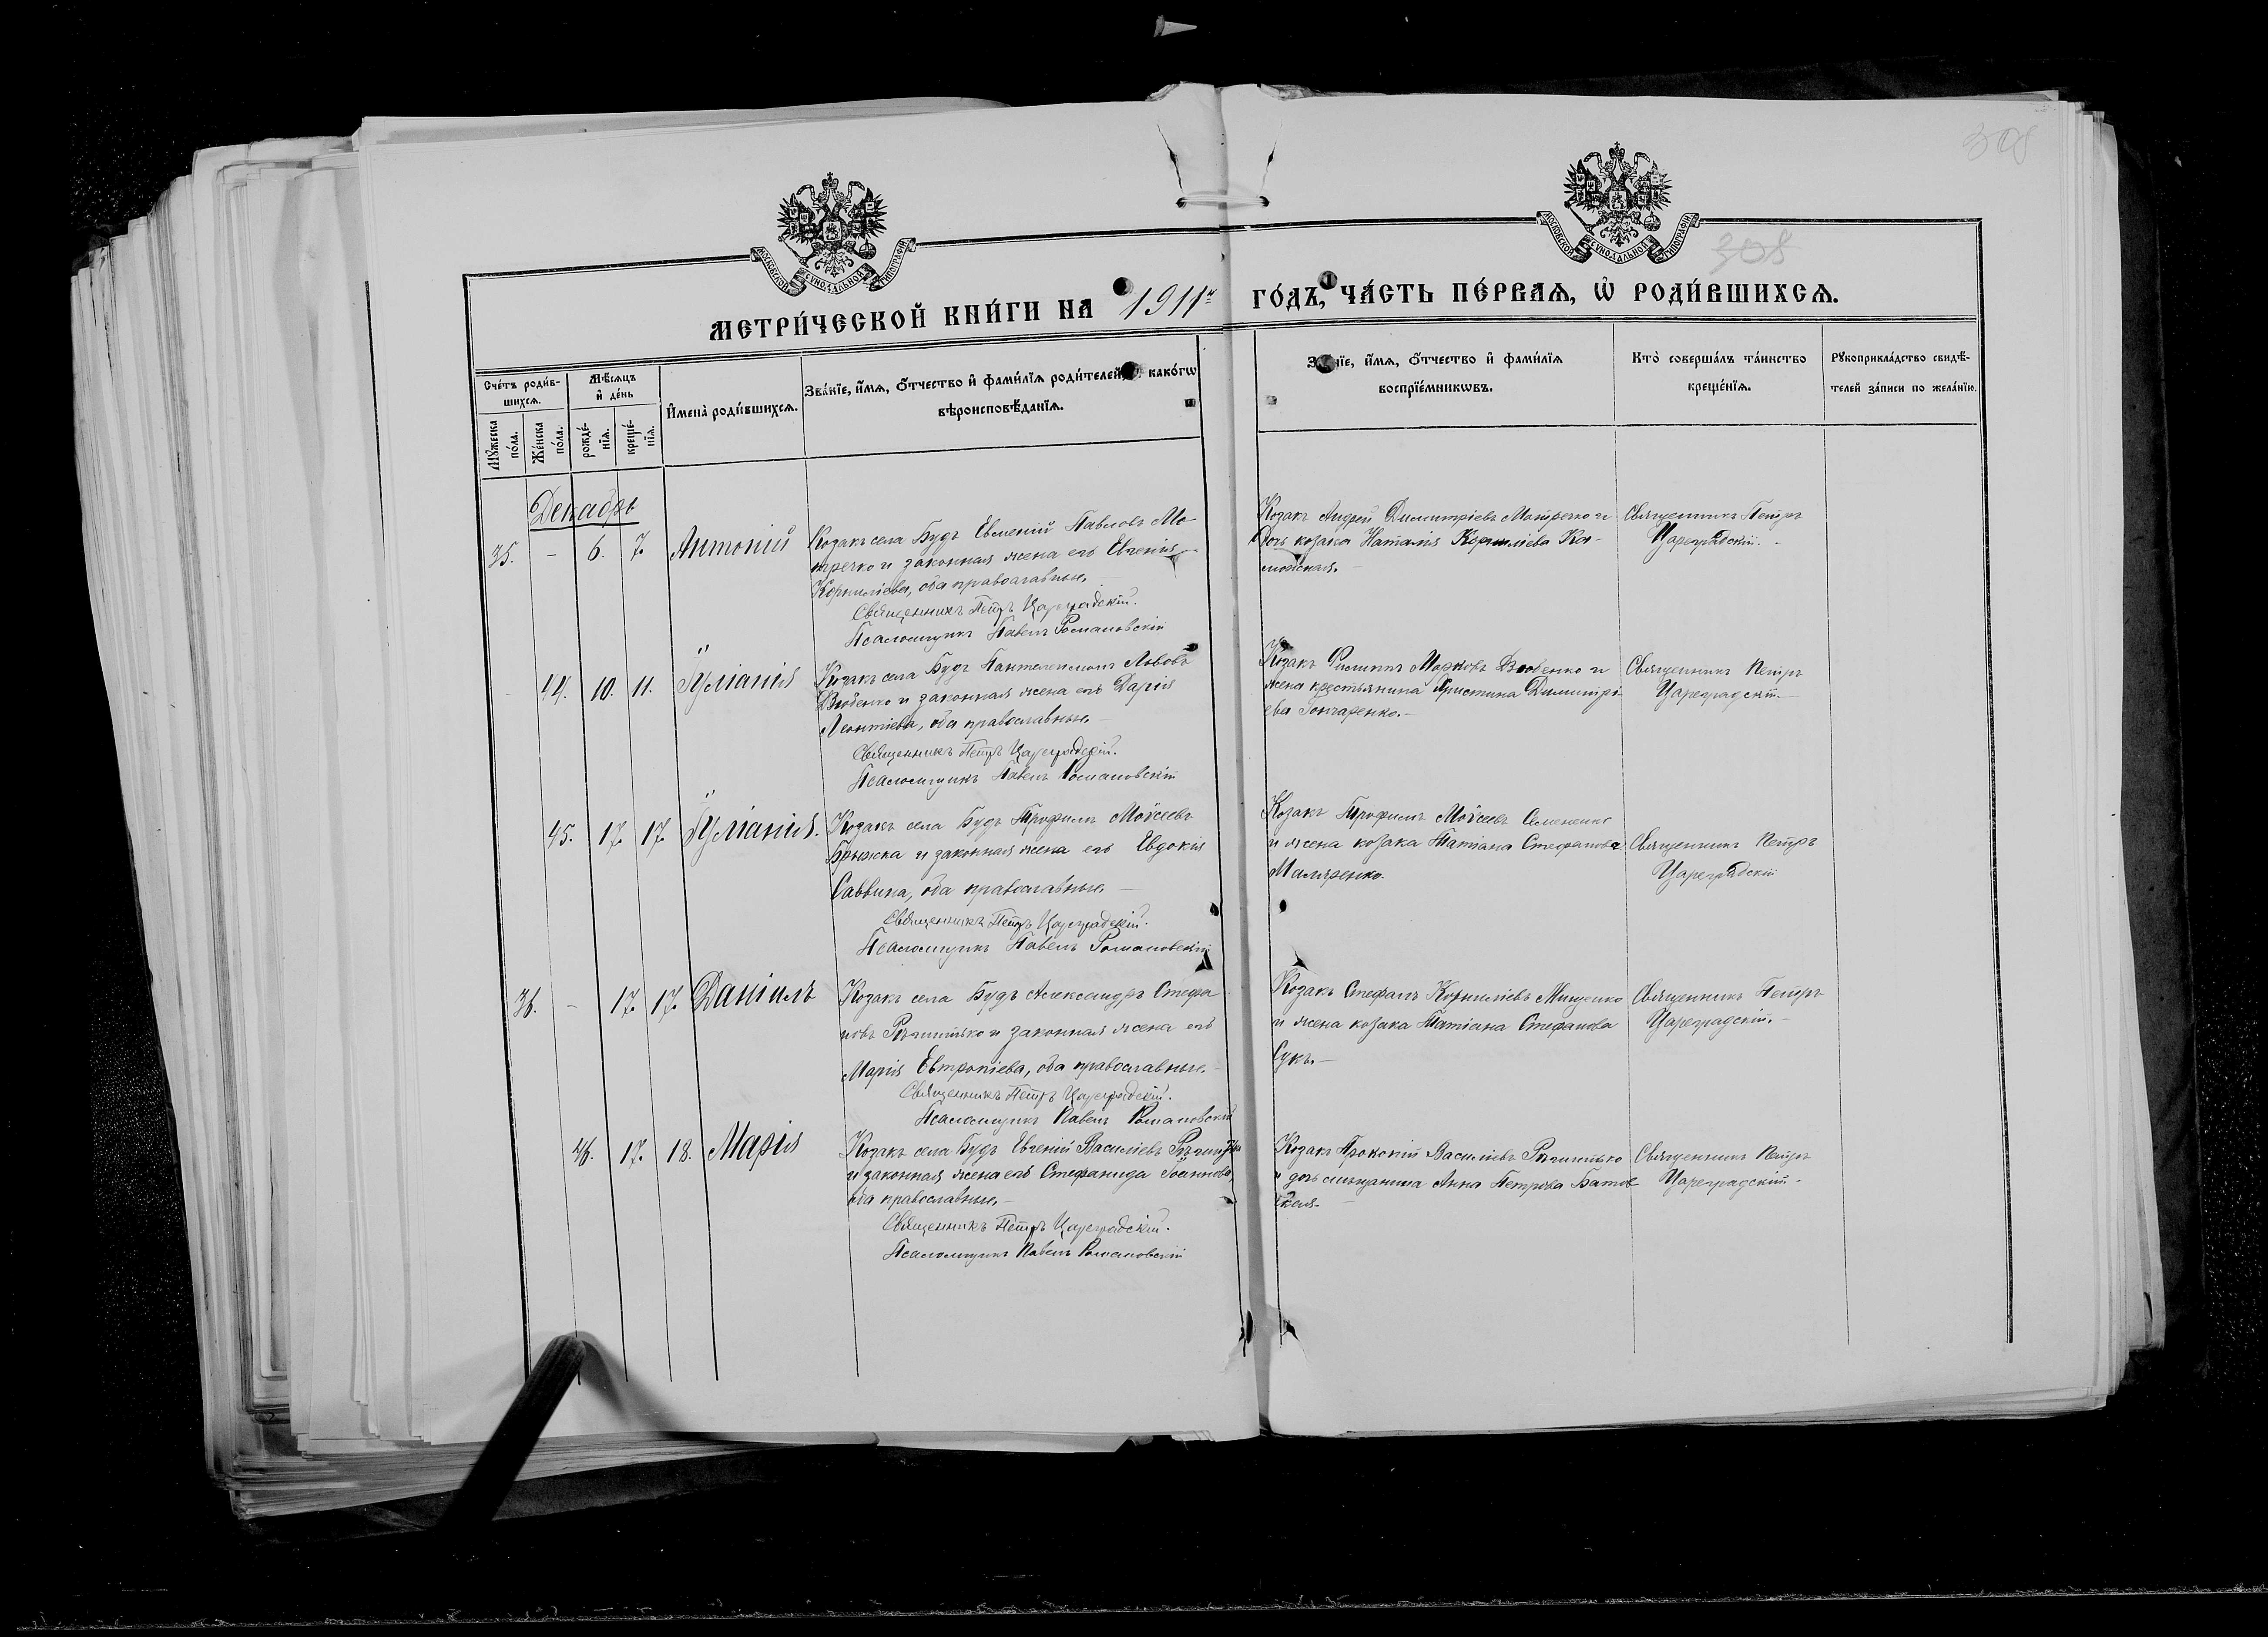 308
МОСКОВСКОЙ СУНОДАЛЬНОЙ ТИПОГРАФІИ
МОСКОВСКОЙ СУНОДАЛЬНОЙ ТИПОГРАФІИ
308
МЕТРИ́ЧЕСКОЙ КНИ́ГИ НА 1911й ГО́ДЪ, ЧА́СТЬ ПЕ́РВАѦ, Ѡ РОДИ́ВШИХСѦ.
Сче́тъ роди́в-
шихсѧ.
Мꙋжеска по́ла.
Же́нска по́ла.
Мѣ́сѧцъ
и҆ де́нь
рожде́-
нїѧ.
креще́-
нїѧ.
И҆мена̀ роди́вшихсѧ.
Зва́нїе, и҆́мѧ, ѻ҆́тчество и҆ фами́лїѧ роди́телей, како́гѡ
вѣроисповѣ́данїѧ.
и҆́мѧ, ѻ҆́тчество и҆ фами́лїѧ
воспрїе́мникѡвъ.
Кто̀ соверша́лъ та́инство
креще́нїѧ.
Рꙋкоприкла́дство свидѣ́-
телей за́писи по жела́нїю.
Декабрь
35. – 6. 7. Антоній
Козакъ села Будъ Евмений Павловъ Мо-
тречко и законная жена его Евгенія
Корниліева, оба православные.
Священникъ Петръ Цареградскій.
Псаломщикъ Павелъ Романовскій
Козакъ Андрей Димитріевъ Мотречко и
Дочь козака Наталія Корниліева
Священникъ Петръ
Цареградскій.
44. 10. 11. Іуліанія
Козакъ села Будъ Пантелеимонъ Львовъ
Вдовенко и законная жена его Дарія
Леонтіева, оба православные.
Священникъ Петръ Цареградскій.
Псаломщикъ Павелъ Романовскій
Козакъ Филиппъ Марковъ Вдовенко и
жена крестьянина Христина Димитрі-
ева Гончаренко.
Священникъ Петръ
Цареградскій.
45. 17. 17. Іуліанія.
Козакъ села Будъ Трофимъ Моѵсеевъ
Брыжка и законная жена его Евдокія
Саввина, оба православные.
Священникъ Петръ Цареградскій.
Псаломщикъ Павелъ Романовскій
Козакъ Трофимъ Моѵсеевъ Семененко
и жена козака Татіана Стефанова
Маляренко.
Священникъ Петръ
Цареградскій
36. – 17. 17. Даніилъ
Козакъ села Будъ Александръ Стефа
новъ Рѣшитько и законная жена его
Марія Евтропіева, оба православные.
Священникъ Петръ Цареградскій.
Псаломщикъ Павелъ Романовскій
Козакъ Стефанъ Корниліевъ Мищенко
и жена козака Татіана Стефанова
Сукъ.
Священникъ Петръ
Цареградскій.
46. 17. 18. Марія
Козакъ села Будъ Евгеній Василіевъ Рѣшитько
и законная жена его Стефанида Іоаннова,
оба православные.
Священникъ Петръ Цареградскій.
Псаломщикъ Павелъ Романовскій
Козакъ Прокопій Василіевъ Рѣшитько
и дочь мѣщанина Анна Петрова Батов
ская.
Священникъ Петръ
Цареградскій.